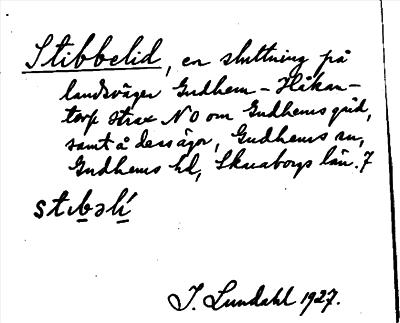 Stibbelid, en sluttning på
landsvägen Gudhem - Håkan-
torp strax NO om Gudhems gård,
samt å dess ägor, Gudhems sn,
Gudhems hd, Skaraborgs län. 7
stıbəlí
J. Lundahl 1927.